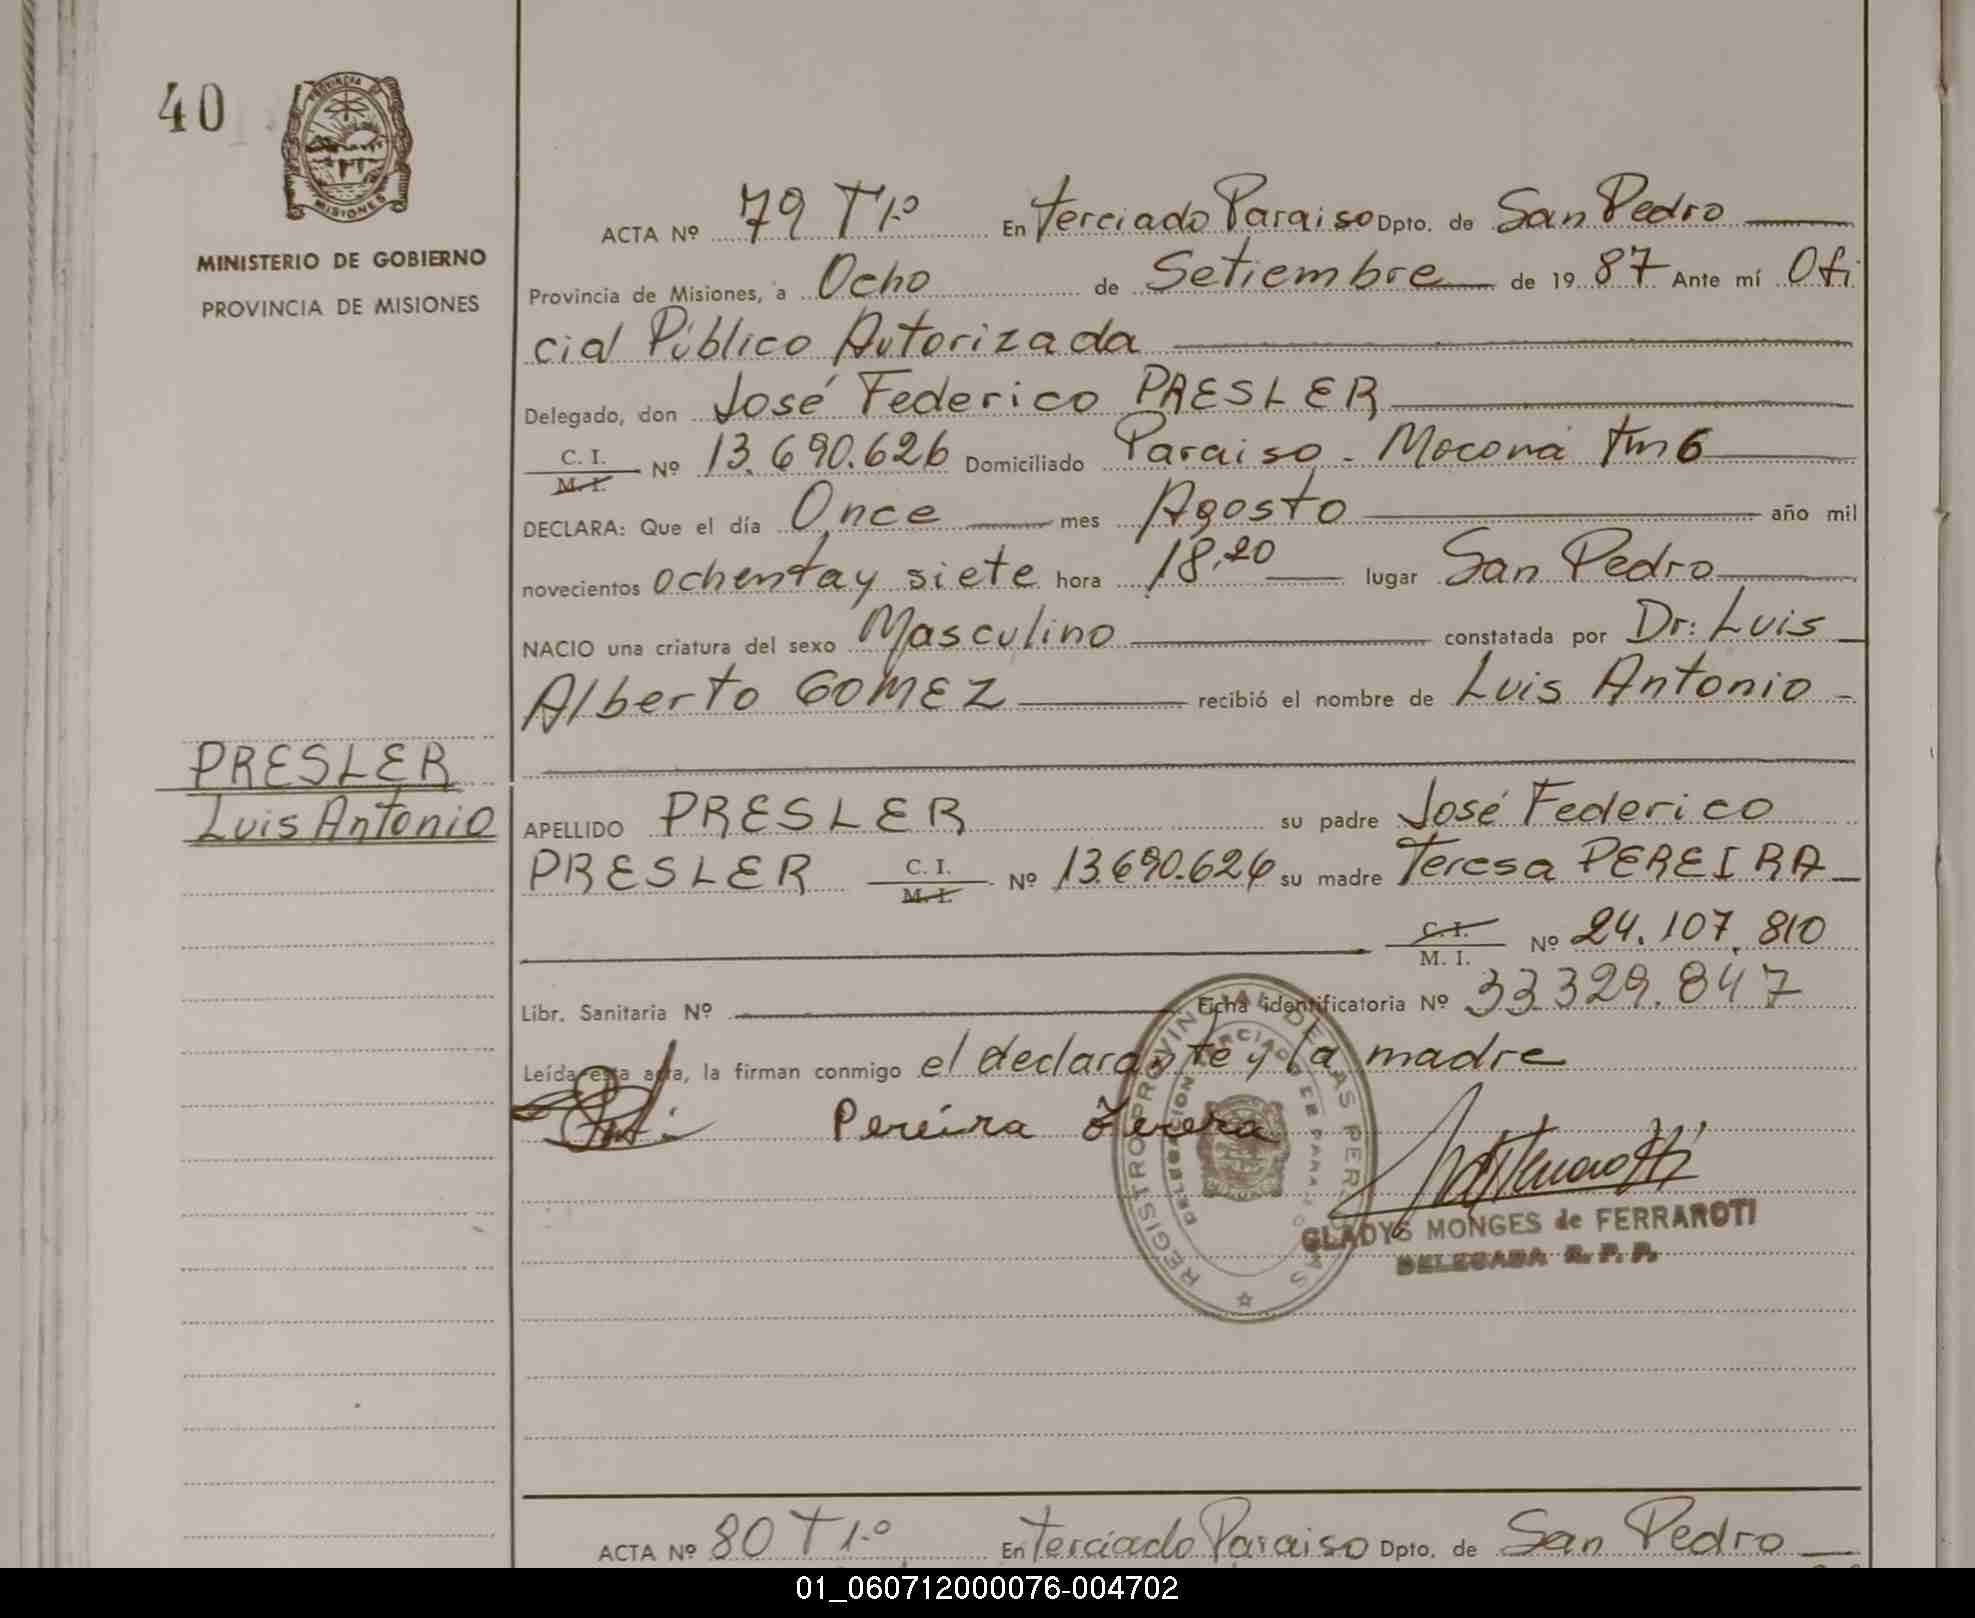 40
PROVINCIA DE
MISIONES
MINISTERIO DE GOBIERNO
PROVINCIA DE MISIONES
ACTA Nº 79 T 1º En Terciado Paraiso Dpto. de San Pedro
Provincia de Misiones, a Ocho de Setiembre de 19 87 Ante mí Ofi
cial Público Autorizada
Delegado, don José Federico PRESLER
C. I.
M. I. Nº 13.690.626 Domiciliado Paraiso - Moconá Km 6
DECLARA: Que el día Once mes Agosto año mil
novecientos ochenta y siete hora 18,20 lugar San Pedro
NACIO una criatura del sexo Masculino constatada por Dr: Luis
Alberto GOMEZ recibió el nombre de Luis Antonio
PRESLER
Luis Antonio
APELLIDO PRESLER su padre José Federico
PRESLER C. I.
M. I. Nº 13.690.626 su madre Teresa PEREIRA
C. I.
M. I. Nº 24.107.810
Libr. Sanitaria Nº Ficha identificatoria Nº 33329.847
Leída esta acta, la firman conmigo el declarante y la madre
Pereira
REGISTRO PROVINCIAL DE LAS PERSONAS
DELEGACION TERCIADO DE PARAISO
GLADYS MONGES de FERRAROTI
DELEGADA R. P. P.
ACTA Nº 80 T 1º En Terciado Paraiso Dpto. de San Pedro
01_060712000076-004702